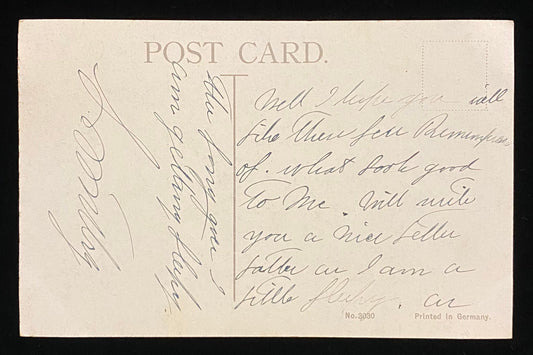 POST CARD.
Well I hope you will
like these few Rememberances
of. what look good
to Me. Will write
you a nice letter
latter as I am a
little sleepy. as
No. 3030
Printed in Germany.
the longer I
am getting sleepy.